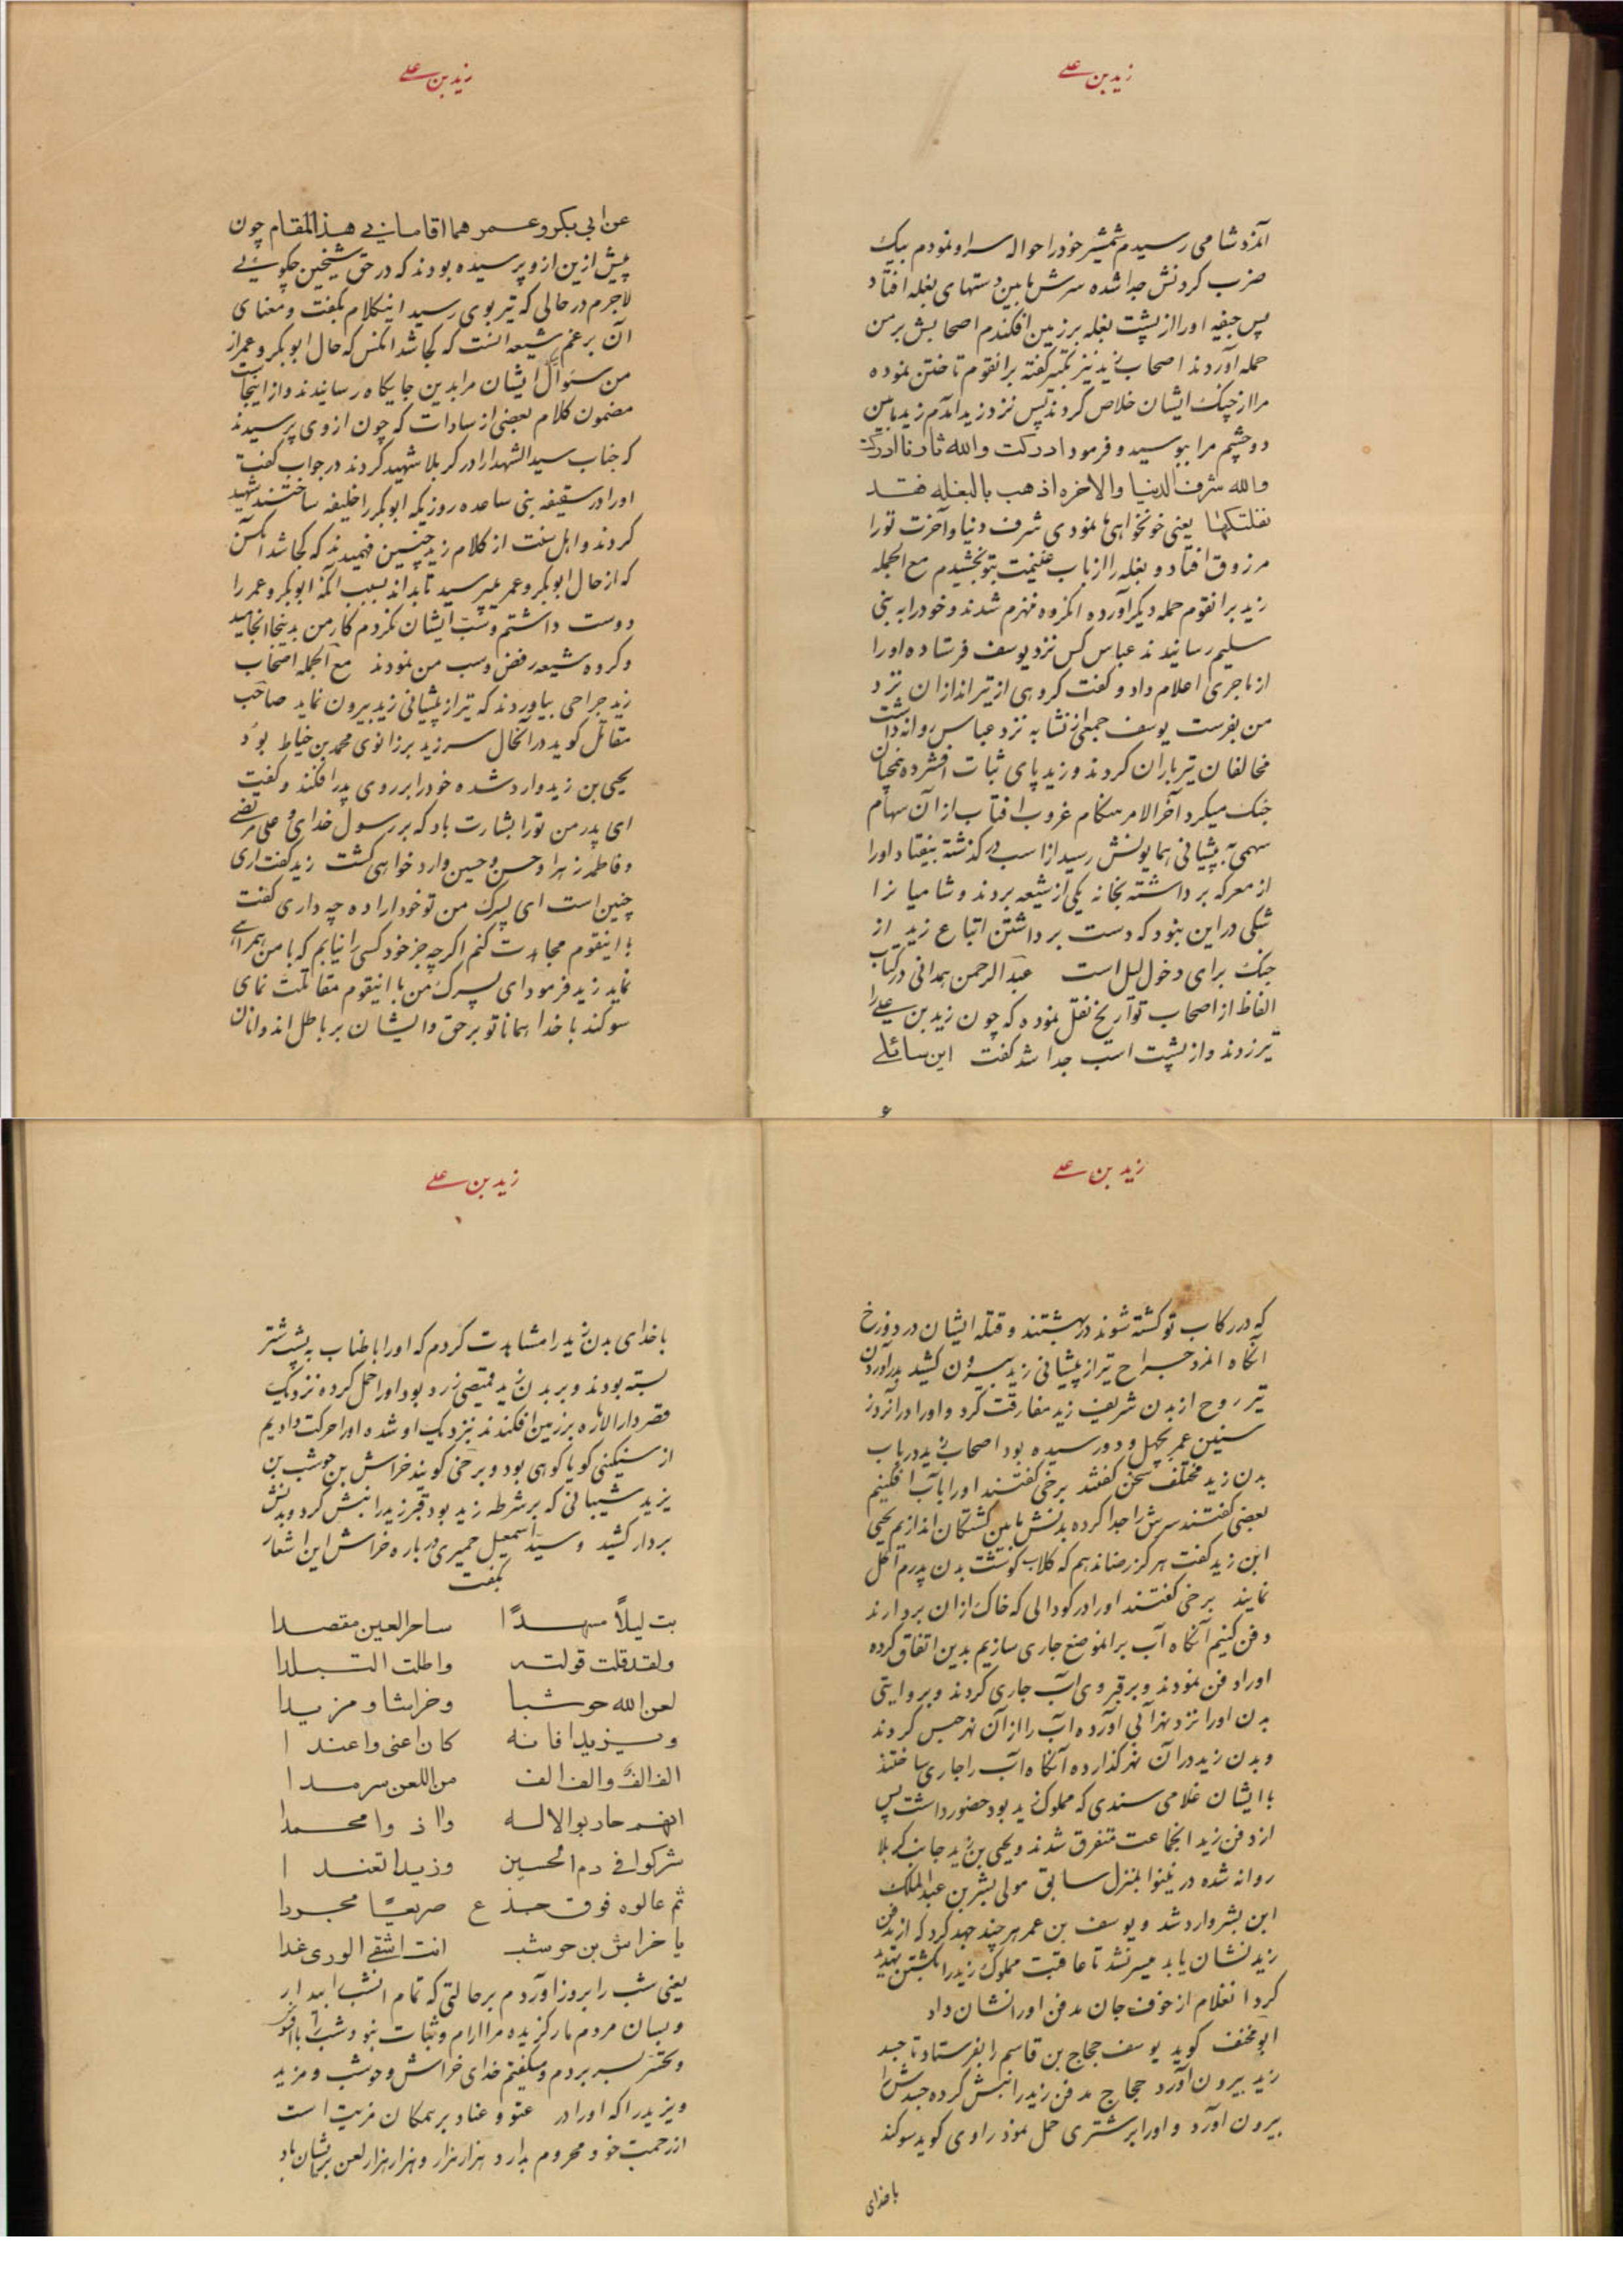 زید بن علی
آنمرد شامی رسیدم شمشیر خود را حواله سر او نمودم بیک
ضرب کردنش جدا شده سرش مابین دستهای بغله افتاد
پس جیفه او را از پشت بغله بر زمین افکندم اصحابش بر من
حمله آوردند اصحاب زید نیز تکبیر گفته بر انقوم تاختن نموده
مرا از چنک ایشان خلاص کردند پس نزد زید آمدم زید مابین
دو چشم مرا ببوسید و فرمود ادرکت والله ثارنا ادرکت
والله شرف الدنیا والاخره اذهب بالبغله فقد
نفلتکها یعنی خونخواهی ما نمودی شرف دنیا و آخرت تو را
مرزوق افتاد و بغله را از باب غنیمت بتو بخشیدم مع الجمله
زید بر انقوم حمله دیگر آورده انگروه منهزم شدند و خود را به بنی
سلیم رسانیدند عباس کس نزد یوسف فرستاده او را
از ماجری اعلام داد و گفت گروهی از تیراندازان نزد
من بفرست یوسف جمعی از نشابه نزد عباس روانه داشت
مخالفان تیرباران کردند و زید پای ثبات افشرده همچنان
جنک میکرد آخر الامر هنکام غروب افتاب از آن سهام
سهمی به پیشانی همایونش رسید از اسب در گذشته بیفتاد او را
از معرکه برداشته بخانه یکی از شیعه بردند و شامیانرا
شکی در این نبود که دست برداشتن اتباع زید از
جنک برای دخول لیل است عبد الرحمن همدانی در کتاب
الفاظ از اصحاب تواریخ نقل نموده که چون زید بن علی را
تیر زدند و از پشت اسب جدا شد گفت این سائلی
زید بن علی
عن ابی بکر و عمر هما اقامانی هذا المقام چون
پیش ازین از و پرسیده بودند که در حق شیخین چگوئی
لاجرم در حالی که تیر بوی رسید اینکلام بگفت و معنای
آن بر غم شیعه انست که کجا شد انکس که حال ابوبکر و عمر از
من سئوال ایشان مرا بدین جایگاه رسانیدند و از اینجاست
مضمون کلام بعضی از سادات که چون از وی پرسیدند
که جناب سید الشهدا را در کربلا شهید کردند در جواب گفت
او را در سقیفه بنی ساعده روزیکه ابوبکر را خلیفه ساختند شهید
کردند و اهل سنت از کلام زید چنین فهمیدند که کجا شد انکس
که از حال ابوبکر و عمر میپرسید تا بداند بسبب آنکه ابوبکر و عمر را
دوست داشتم و سب ایشان نکردم کار من بدینجا انجامید
و گروه شیعه رفض و سب من نمودند مع الجمله اصحاب
زید جراحی بیاوردند که تیر از پیشانی زید بیرون نماید صاحب
مقاتل گوید در آنحال سر زید بر زانوی محمد بن خیاط بود
یحیی بن زید وارد شده خود را بر روی پدر افکند و گفت
ای پدر من تو را بشارت باد که بر رسول خدای و علی مرتضی
و فاطمه زهرا و حسن و حسین وارد خواهی گشت زید گفت آری
چنین است ای پسرک من تو خود اراده چه داری گفت
با اینقوم مجاهدت کنم اگر چه جز خود کسی را نیابم که با من همراهی
نماید زید فرمود ای پسرک من با اینقوم مقاتلت نمای
سوگند با خدا همانا تو بر حق و ایشان بر باطل اند و انان
زید بن علی
که در رکاب تو کشته شوند در بهشتند و قتله ایشان در دوزخ
آنگاه آنمرد جراح تیر از پیشانی زید بیرون کشید بدر آوردن
تیر روح از بدن شریف زید مفارقت کرد و او را در آنروز
سنین عمر بچهل و دو رسیده بود اصحاب زید در باب
بدن زید مختلف سخن گفتند برخی گفتند او را بآب افکنیم
بعضی گفتند سرش را جدا کرده بدنش مابین کشتگان اندازیم یحیی
ابن زید گفت هرگز رضا ندهم که کلاب گوشت بدن پدرم اکل
نمایند برخی گفتند او را در گودالی که خاک از ان بردارند
دفن کنیم آنگاه آب بر انموضع جاری سازیم بدین اتفاق کرده
او را دفن نمودند و بر قبر وی آب جاری کردند و بروایتی
بدن او را نزد نهر آبی آورده آب را از آن نهر حبس کردند
و بدن زید در آن نهر گذارده آنگاه آب را جاری ساختند
با ایشان غلامی سندی که مملوک زید بود حضور داشت پس
از دفن زید انجماعت متفرق شدند و یحیی بن زید جانب کربلا
روانه شده در نینوا بمنزل سابق مولی بشر بن عبد الملک
ابن بشر وارد شد و یوسف بن عمر هر چند جهد کرد که از مدفن
زید نشان یابد میسر نشد تا عاقبت مملوک زید را بکشتن تهدید
کرد انغلام از خوف جان مدفن او را نشان داد
ابو مخنف گوید یوسف حجاج بن قاسم را بفرستاد تا جسد
زید بیرون آورد حجاج مدفن زید را نبش کرده جسدش را
بیرون آورد و او را بر شتری حمل نمود راوی گوید سوگند
با خدای
زید بن علی
با خدای بدن زید را مشاهدت کردم که او را با طناب به پشت شتر
بسته بودند و بر بدن زید قمیصی زرد بود او را حمل کرده نزدیک
قصر دار الاماره بر زمین افکندند نزدیک او شده او را حرکت دادیم
از سنگینی گویا کوهی بود و برخی گویند خراش بن حوشب بن
یزید شیبانی که بر شرطه زید بود قبر زید را نبش کرد و بدنش
بردار کشید و سید اسمعیل حمیری در باره خراش این اشعار
بگفت
بت لیلاً مسهدًا ساحر العین مقصدا
ولقد قلت قولتـه واطلت التبلدا
لعن الله حوشبا وخراشا ومزیدا
ویزیدا فانه کان اعتی واعندا
الف الف والف الف من اللعن سرمدا
انهم حاربوا الاله واذوا محمدا
شرکوا فی دم الحسین وزیدا تعندا
ثم عالوه فوق جذع صریعًا مجردا
یا خراش بن حوشب انت اشقی الوری غدا
یعنی شب را بروز آوردم بر حالتی که تمام انشب بیدار
و بسان مردم مار گزیده مرا ارام و ثبات نبود و شب را با افسوس
و تحسر بسر بردم و میگفتم خدای خراش و حوشب و مزید
و یزید را که او را در عتو و عناد بر همگان مزیت است
از رحمت خود محروم بدارد و هزار هزار و هزار هزار لعن بر ایشان باد